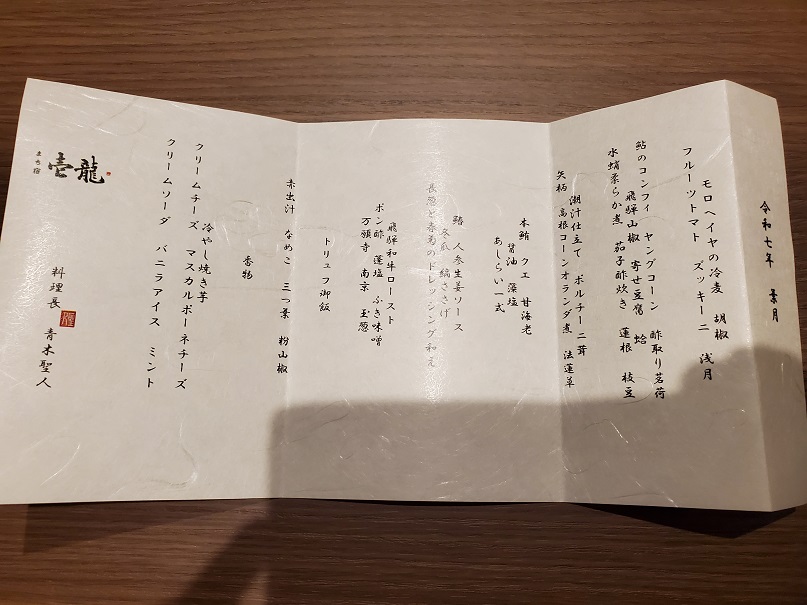 令和七年 葉月
モロヘイヤの冷麦 胡椒
フルーツトマト ズッキーニ 浅月
鮎のコンフィ ヤングコーン 酢取り茗荷
飛騨山椒 寄せ豆腐 蛤
水蛸柔らか煮 茄子酢炊き 蓮根 枝豆
潮汁仕立て ポルチーニ茸
矢柄 高根コーンオランダ煮 法蓮草
本鮪 クエ 甘海老
醤油 藻塩
あしらい一式
鱔 人参生姜ソース
冬瓜 縞ささげ
長葱と香菊のドレッシング和え
飛騨和牛ロースト
ポン酢 蓬塩 ふき味噌
万願寺 南京 玉葱
トリュフ御飯
赤出汁 なめこ 三つ葉 粉山椒
香物
冷やし焼き芋
クリームチーズ マスカルポーネチーズ
クリームソーダ バニラアイス ミント
龍
壱
まち宿
料理長 青木聖人